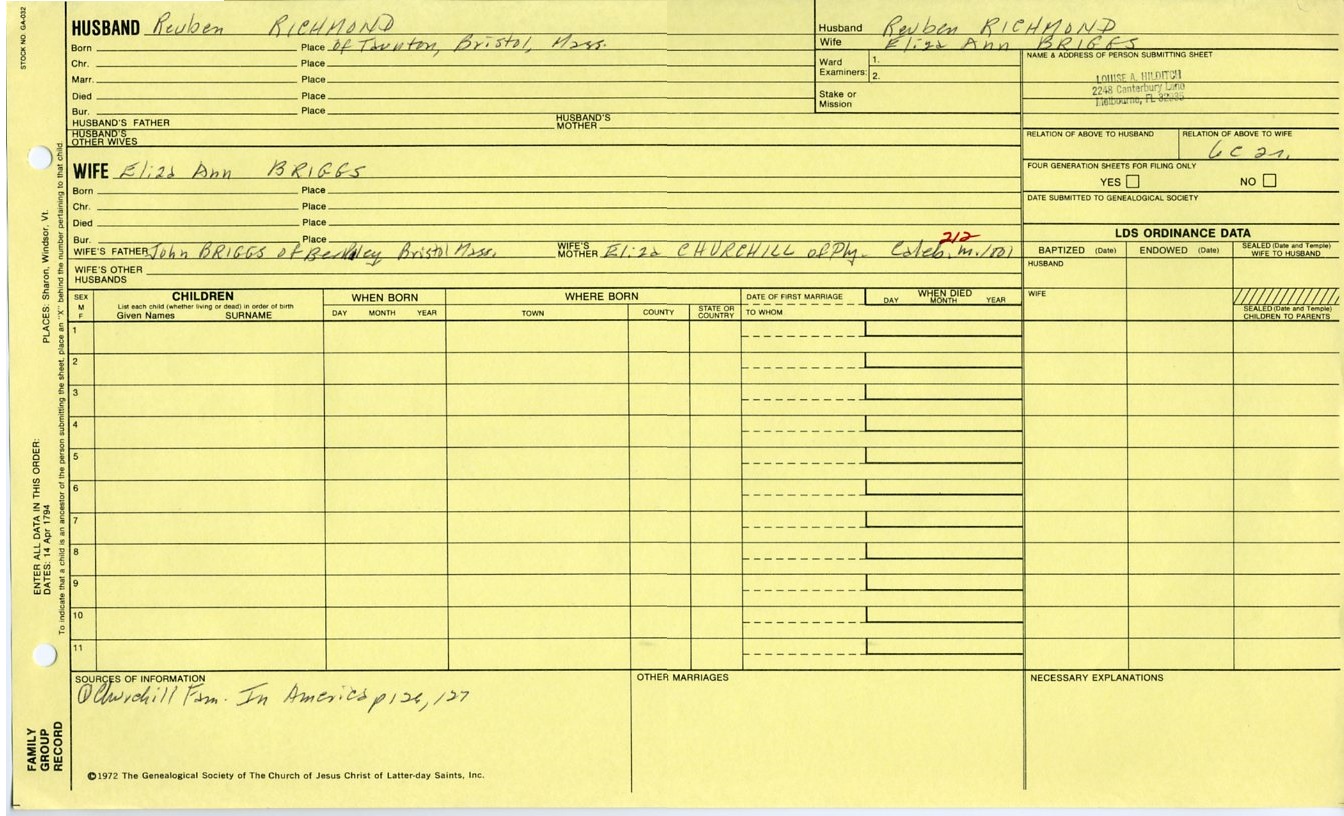 STOCK NO. GA-032
HUSBAND Reuben RICHMOND
Born Place of Taunton, Bristol, Mass.
Chr. Place
Marr. Place
Died Place
Bur. Place
HUSBAND'S FATHER HUSBAND'S MOTHER
HUSBAND'S OTHER WIVES
Husband Reuben RICHMOND
Wife Eliza Ann BRIGGS
Ward Examiners: 1.
2.
Stake or Mission
NAME & ADDRESS OF PERSON SUBMITTING SHEET
LOUISE A. HILDITCH
2248 Canterbury Lane
Melbourne, FL 32935
RELATION OF ABOVE TO HUSBAND RELATION OF ABOVE TO WIFE
6C 2r.
FOUR GENERATION SHEETS FOR FILING ONLY
YES NO
DATE SUBMITTED TO GENEALOGICAL SOCIETY
WIFE Eliza Ann BRIGGS
Born Place
Chr. Place
Died Place
Bur. Place
212
WIFE'S FATHER John BRIGGS of Berkley Bristol Mass. WIFE'S MOTHER Eliza CHURCHILL of Ply. Caleb, m.
WIFE'S OTHER HUSBANDS
LDS ORDINANCE DATA
BAPTIZED (Date) ENDOWED (Date) SEALED (Date and Temple) WIFE TO HUSBAND
HUSBAND
WIFE
SEALED (Date and Temple) CHILDREN TO PARENTS
SEX M F
CHILDREN
List each child (whether living or dead) in order of birth
Given Names SURNAME
WHEN BORN
DAY MONTH YEAR
WHERE BORN
TOWN COUNTY STATE OR COUNTRY
DATE OF FIRST MARRIAGE
TO WHOM
WHEN DIED
DAY MONTH YEAR
1
2
3
4
5
6
7
8
9
10
11
SOURCES OF INFORMATION
① Churchill Fam. In America p 126, 127
OTHER MARRIAGES
NECESSARY EXPLANATIONS
©1972 The Genealogical Society of The Church of Jesus Christ of Latter-day Saints, Inc.
FAMILY GROUP RECORD
ENTER ALL DATA IN THIS ORDER:
DATES: 14 Apr 1794
PLACES: Sharon, Windsor, Vt.
To indicate that a child is an ancestor of the person submitting the sheet, place an "X" behind the number pertaining to that child.